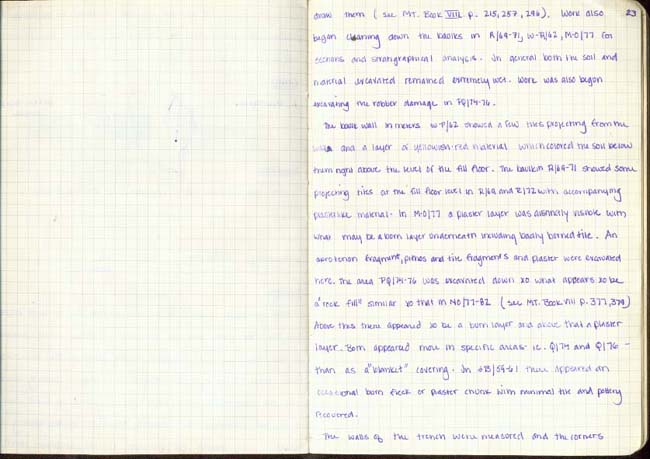 23
draw them (see MT. Book VIII p. 215, 257, 296). Work also
began cleaning down the baulks in R/69-71, W-R/62, M-O/77 for
sections and stratigraphical analysis. In general both the soil and
material excavated remained extremely wet. Work was also begun
excavating the robber damage in PQ/74-76.
The baulk wall in meters W-P/62 showed a few tiles projecting from the
and a layer of yellowish-red material which colored the soil below
them right above the level of the fill floor. The baulk in R/69-71 showed some
projecting tiles at the fill floor level in R/69 and R/72 with accompanying
plasterlike material. In M-O/77 a plaster layer was distinctly visible with
what may be a burn layer underneath including badly burned tile. An
acroterion fragment, pithos and tile fragments and plaster were excavated
here. The area PQ/74-76 was excavated down to what appears to be
a "rock fill" similar to that in NO/77-82 (see MT. Book VIII p. 377, 379)
Above this there appeared to be a burn layer and above that a plaster
layer. Both appeared more in specific areas - ie. Q/74 and Q/76 -
than as a "blanket" covering. In /59-61 there appeared an
occasional burn fleck or plaster chunk with minimal tile and pottery
recovered.
The walls of the trench were measured and the corners